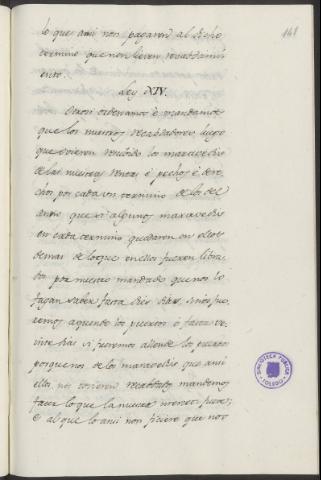 141
lo que ami non pagaren al dicho
termino que non lieven recabdami
ento.
Ley XIV.
Otrosi ordenamos é mandamos
que los nuestros recabdadores luego
que ovieren rescibido los maravedis
de las nuestras rentas é pechos é dere
chos por cada un termino de los del
anno que si algunos maravedis
en cada termino quedaren en ellos
demas de los que en ellos fueren libra
dos por nuestro mandado que nos lo
fagan saber fasta dies dias si nos fue
remos aquende los puertos é fasta ve
inte dias si fueremos allende los puertos
porque nos de los maravedis que ansi
ellos nos tovieren recabdados mandemos
facer lo que la nuestra merced fuere;
é al que lo ansi non ficiere que nos
BIBLIOTECA PÚBLICA
TOLEDO